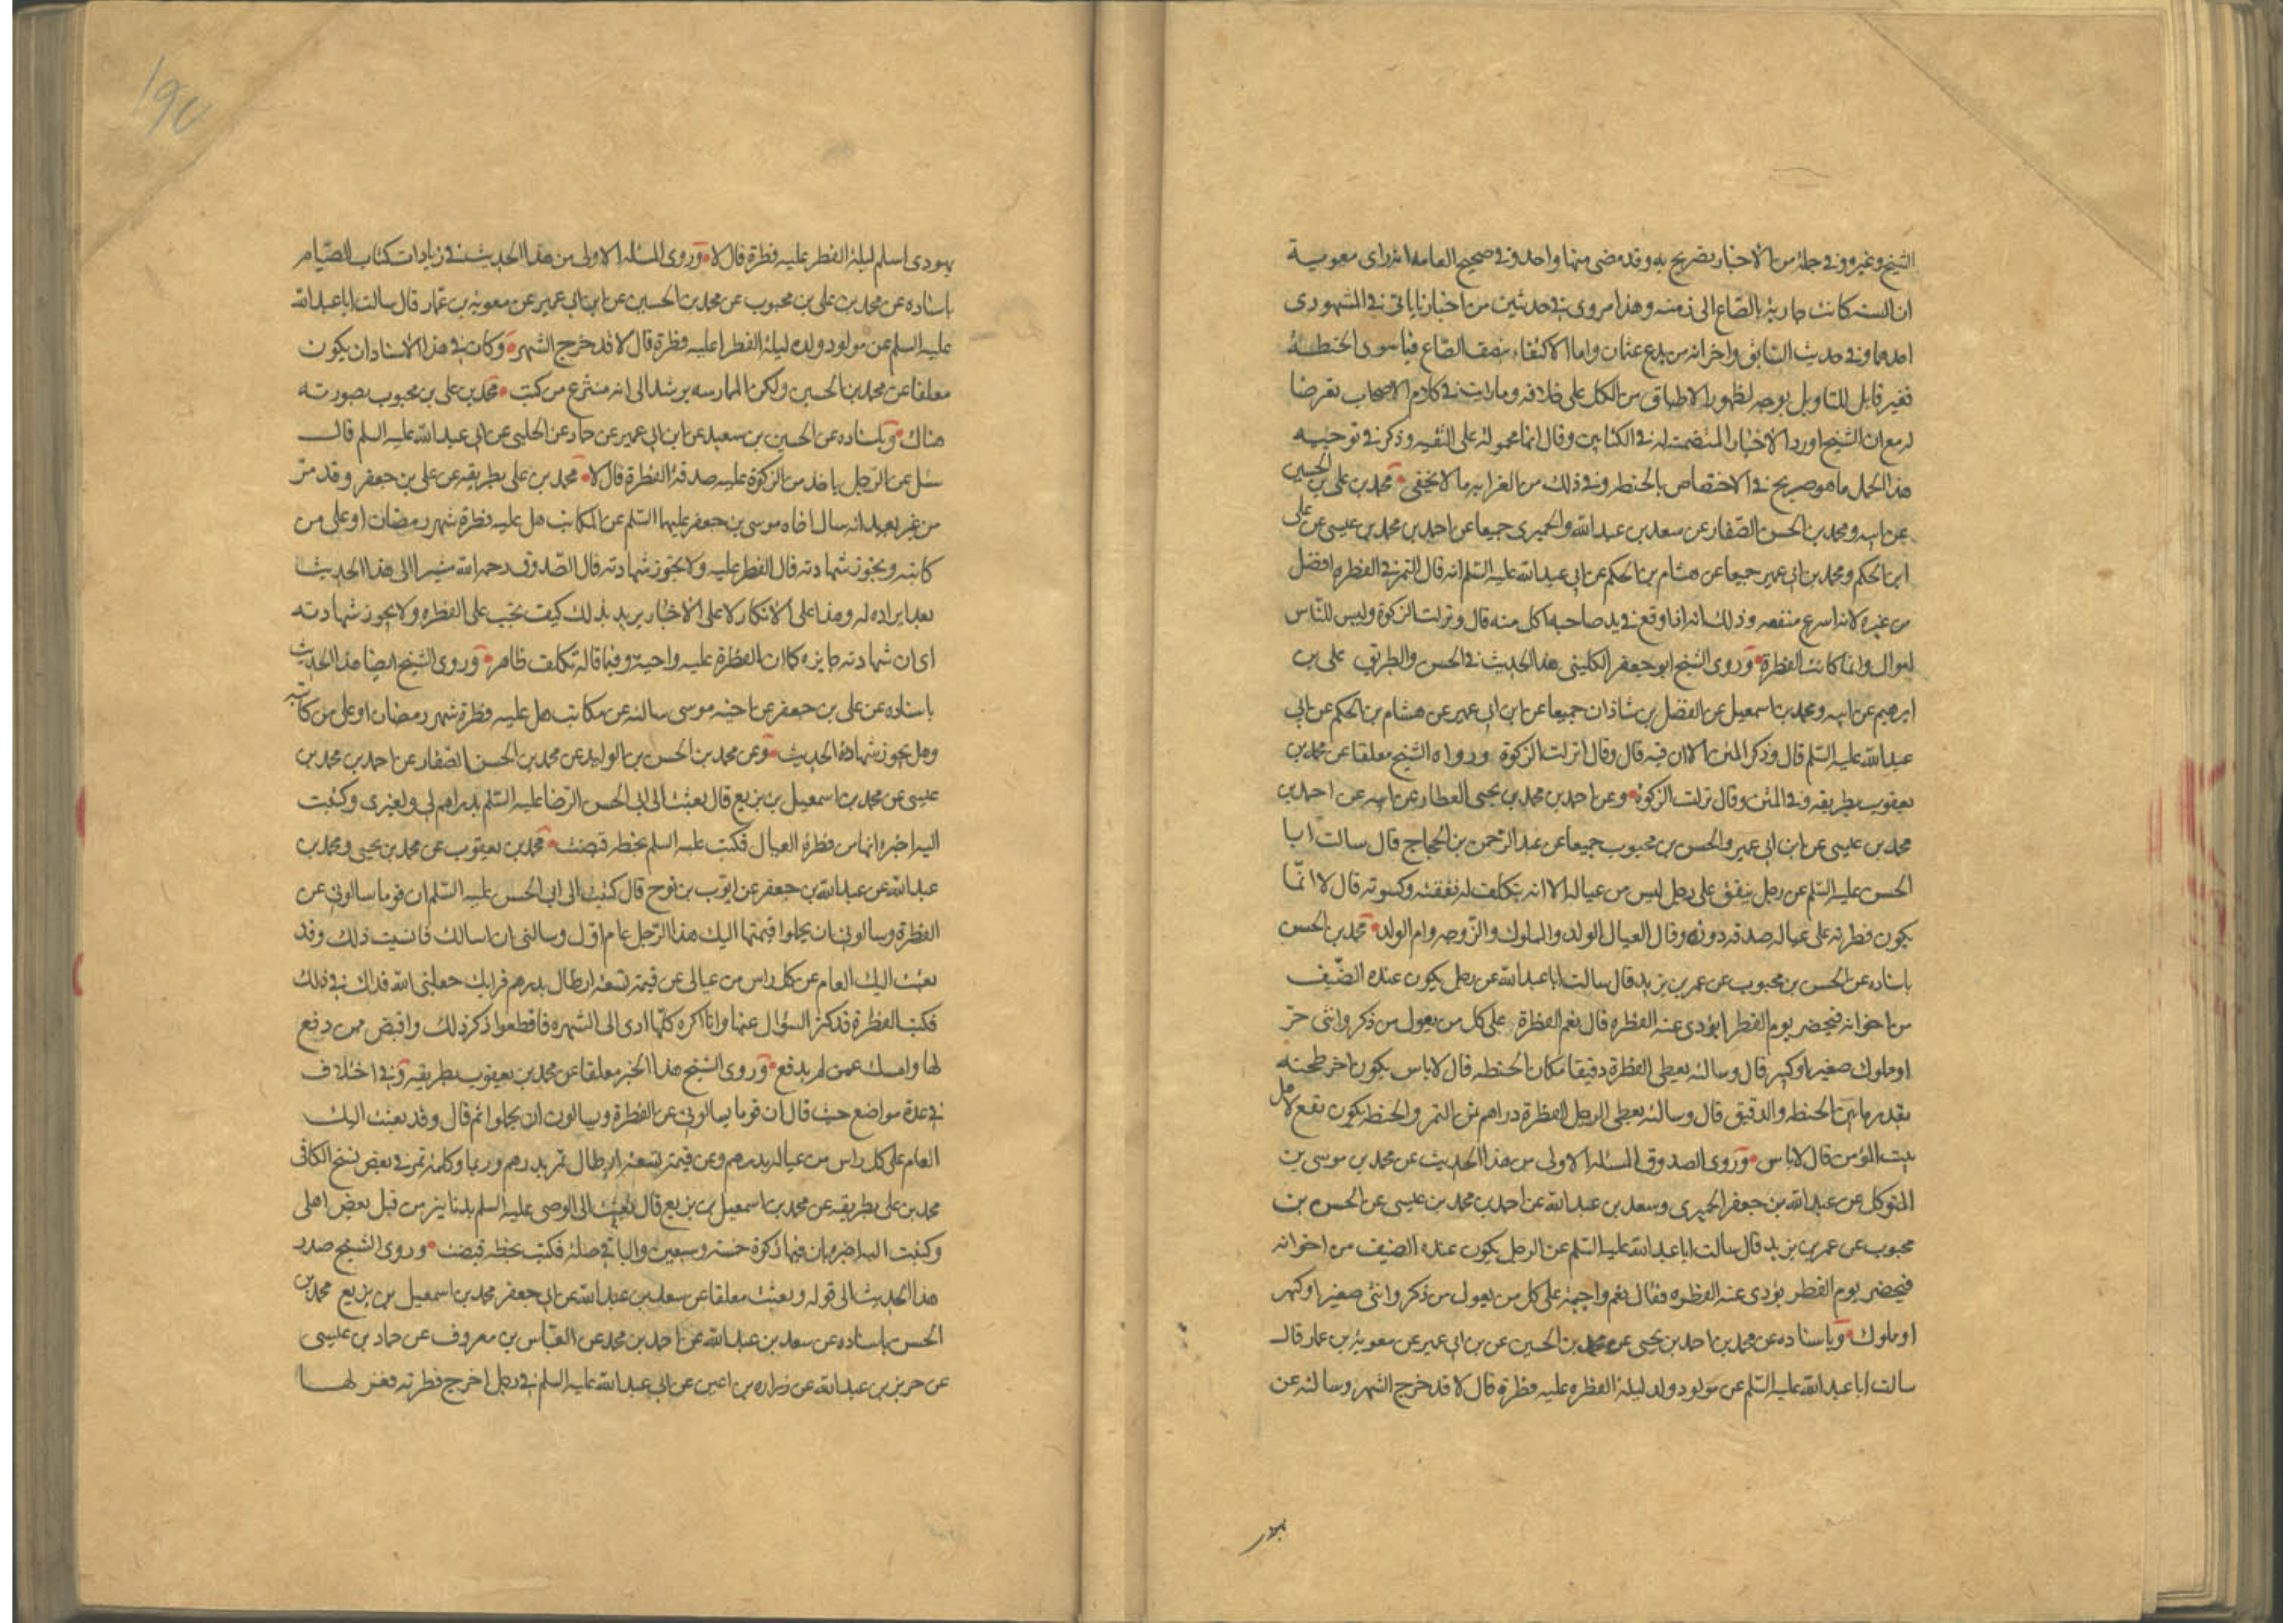 الشيخ وغيره وفي جملة من الاخبار تصريح به وقد مضى منها واحد وفي صحيح العامه انه راى معوية
ان السنة كانت جارية بالصاع الى زمنه وهذا مروى في حديثين من اخبارنا ياتى في المشهورى
احدهما وفي حديث السابق واخر انه من بدع عثمان واما الاكتفاء بنصف الصاع فيما سوى الحنطة
فغير قابل للتاويل بوجه لظهور الاطباق من الكل على خلافه وما رايت في كلام الاصحاب تعرضا
له مع ان الشيخ اورد الاخبار المتضمنة له في الكتابين وقال انها محمولة على التقية وذكر في توجيه
هذا الحمل ما هو صريح في الاختصاص بالحنطة وفي ذلك من الغرابة ما لا يخفى محمد بن على بن الحسين
عن ابيه ومحمد بن الحسن الصفار عن سعد بن عبد الله والحميرى جميعا عن احمد بن محمد بن عيسى عن على
ابن الحكم ومحمد بن ابي عمير جميعا عن هشام بن الحكم عن ابي عبد الله عليه السلم انه قال التمر في الفطره افضل
من غيره لانه اسرع منفعه وذلك انه اذا وقع في يد صاحبه اكل منه قال ونزلت الزكوة وليس للناس
اموال وانما كانت الفطرة وروى الشيخ ابو جعفر الكلينى هذا الحديث في الحسن والطريق على بن
ابرهيم عن ابيه ومحمد بن اسمعيل عن الفضل بن شاذان جميعا عن ابن ابي عمير عن هشام بن الحكم عن ابي
عبد الله عليه السلم قال وذكر المتن الا ان فيه قال وقال نزلت الزكوة ورواه الشيخ معلقا عن محمد بن
يعقوب بطريقه وفي المتن وقال نزلت الزكوة وعن احمد بن محمد بن يحيى العطار عن ابيه عن احمد بن
محمد بن عيسى عن ابن ابي عمير والحسن بن محبوب جميعا عن عبد الرحمن بن الحجاج قال سالت ابا
الحسن عليه السلم عن رجل ينفق على رجل ليس من عياله الا انه يتكلف له نفقته وكسوته قال لا انما
يكون فطرته على عياله صدقه دونه وقال العيال الولد والمملوك والزوجه وام الولد محمد بن الحسن
باسناده عن الحسن بن محبوب عن عمر بن يزيد قال سالت ابا عبد الله عن رجل يكون عنده الضيف
من اخوانه فيحضر يوم الفطر ايؤدى عنه الفطره قال نعم الفطرة على كل من يعول من ذكر وانثى حر
او مملوك صغير او كبير قال وسالته يعطى الفطرة دقيقا مكان الحنطه قال لا باس يكون اجر طحنه
بقدر ما بين الحنطه والدقيق قال وسالته يعطى الرجل الفطرة دراهم ثمن التمر والحنطه يكون انفع لاهل
بيت المؤمن قال لا باس وروى الصدوق المسئله الاولى من هذا الحديث عن محمد بن موسى بن
المتوكل عن عبد الله بن جعفر الحميرى وسعد بن عبد الله عن احمد بن محمد بن عيسى عن الحسن بن
محبوب عن عمر بن يزيد قال سالت ابا عبد الله عليه السلم عن الرجل يكون عنده الضيف من اخوانه
فيحضر يوم الفطر يؤدى عنه الفطره فقال نعم واجبة على كل من يعول من ذكر وانثى صغير او كبير
او مملوك وباسناده عن محمد بن احمد بن يحيى عن محمد بن الحسين عن بن ابي عمير عن معوية بن عمار قال
سالت ابا عبد الله عليه السلم عن مولود ولد ليلة الفطره عليه فطرة قال لا قد خرج الشهر وسالته عن
190
يهودى اسلم ليلة الفطر عليه فطرة قال لا وروى المسئله الاولى من هذا الحديث في زيادات كتاب الصيام
باسناده عن محمد بن على بن محبوب عن محمد بن الحسين عن ابن ابي عمير عن معوية بن عمار قال سالت ابا عبد الله
عليه السلم عن مولود ولد ليلة الفطر اعليه فطرة قال لا قد خرج الشهر وكان في هذا الاسناد ان يكون
معلقا عن محمد بن الحسين ولكن الممارسه يرشد الى انه منتزع من كتب محمد بن على بن محبوب بصورته
هناك وباسناده عن الحسين بن سعيد عن ابن ابي عمير عن حماد عن الحلبى عن ابي عبد الله عليه السلم قال
سئل عن الرجل ياخذ من الزكوة عليه صدقة الفطرة قال لا محمد بن على بطريقه عن على بن جعفر وقد مر
من غير بعيد انه سال اخاه موسى بن جعفر عليهما السلم عن المكاتب هل عليه فطرة شهر رمضان او على من
كاتبه ويجوز شهادته قال الفطر عليه ولا يجوز شهادته قال الصدوق رحمه الله مشيرا الى هذا الحديث
بعد ايراده له وهذا على الانكار لا على الاخبار يريد بذلك كيف تجب على الفطره ولا يجوز شهادته
اى ان شهادته جايزه كما ان الفطرة عليه واجبة وفيما قاله تكلف ظاهر وروى الشيخ ايضا هذا الحديث
باسناده عن على بن جعفر عن اخيه موسى سالته عن مكاتب هل عليه فطرة شهر رمضان او على من كاتبه
وهل يجوز شهادة الحديث وعن محمد بن الحسن بن الوليد عن محمد بن الحسن الصفار عن احمد بن محمد بن
عيسى عن محمد بن اسمعيل بن بزيع قال بعثت الى ابي الحسن الرضا عليه السلم بدراهم لى ولغيرى وكتبت
اليه اخبره انها من فطرة العيال فكتب عليه السلم بخطه قبضت محمد بن يعقوب عن محمد بن يحيى ومحمد بن
عبد الله عن عبد الله بن جعفر عن ايوب بن نوح قال كتبت الى ابي الحسن عليه السلم ان قوما سالونى عن
الفطرة وسالونى ان يحملوا قيمتها اليك هذا الرجل عام اول وسالنى ان اسالك فانسيت ذلك وقد
بعثت اليك العام عن كل راس من عيالى عن قيمة تسعة ارطال بدرهم فرايك جعلنى الله فداك في ذلك
فكتب الفطرة قد كثر السؤال عنها وانا اكره كلما ادى الى الشهره فاقطعوا ذكر ذلك واقبض ممن دفع
لها وامسك عمن لم يدفع وروى الشيخ هذا الخبر معلقا عن محمد بن يعقوب بطريقه وفي اختلاف
في عدة مواضع حيث قال ان قوما يسالونى عن الفطرة ويسالون ان يحملوا ثم قال وقد بعثت اليك
العام على كل راس من عياله بدرهم وعن قيمة تسعة ارطال تمر بدرهم وربما وكلمة تمر في بعض نسخ الكافى
محمد بن على بطريقه عن محمد بن اسمعيل بن بزيع قال بعثت الى الوصى عليه السلم بدنانير من قبل بعض اهلى
وكتبت اليه اخبره ان فيها زكوة خمسة وسبعين والباقى صلة فكتب بخطه قبضت وروى الشيخ صدر
هذا الحديث الى قوله وبعثت معلقا عن سعد بن عبد الله عن ابي جعفر محمد بن اسمعيل بن بزيع محمد بن
الحسن باسناده عن سعد بن عبد الله عن احمد بن محمد عن العباس بن معروف عن حماد بن عيسى
عن حريز بن عبد الله عن زراره بن اعين عن ابي عبد الله عليه السلم في رجل اخرج فطرته فعزلها